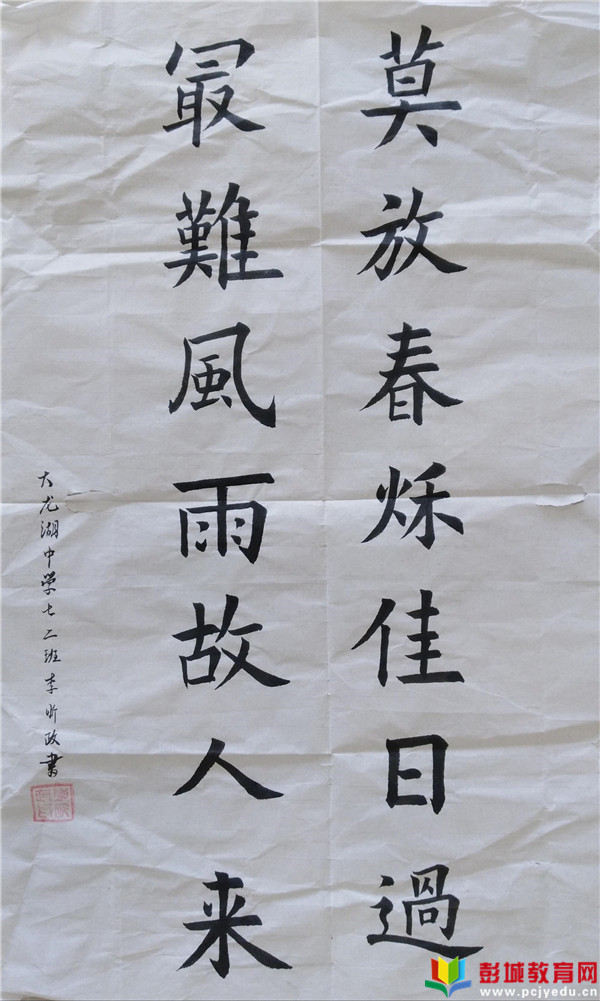 莫放春秌佳日過
最難風雨故人来
大龙湖中学七二班李昕政書
彭城教育网
www.pcjyedu.cn